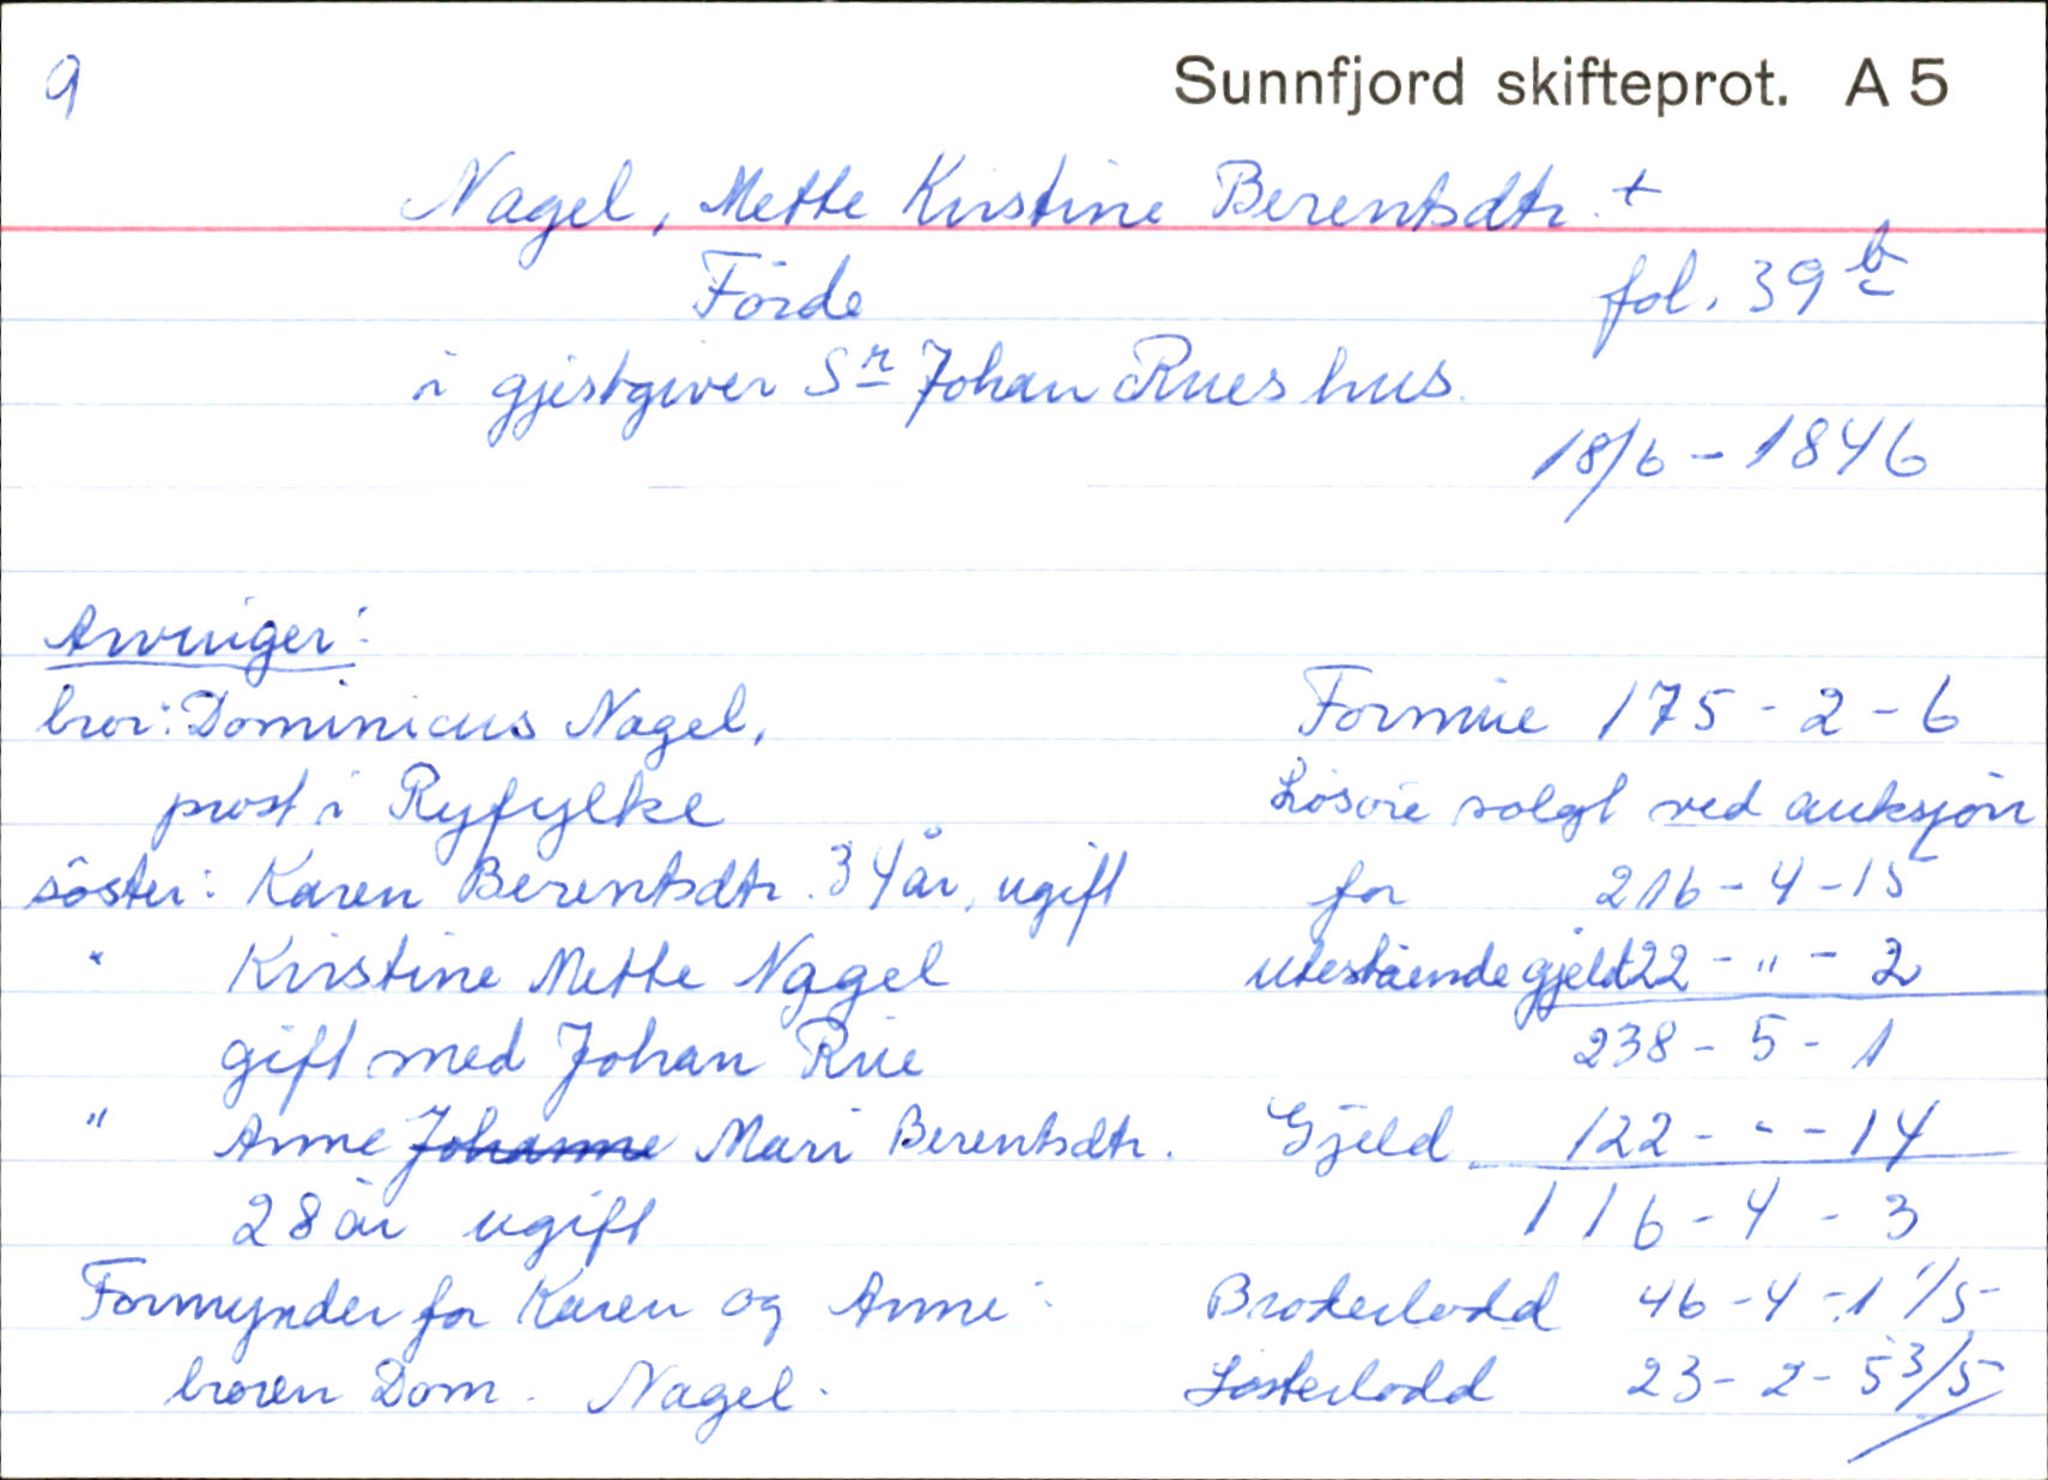 9
Sunnfjord skifteprot. A 5
Nagel, Mette Kirstine Berentsdtr. +
Förde
fol. 39 b
i gjestgiver Sr Johan Rues hus.
18/6 - 1846
Arvinger:
bror: Dominicus Nagel,
prost i Ryfylke
söster: Karen Berentsdtr. 34 år, ugift
" Kirstine Mette Nagel
gift med Johan Rue
" Anne Johanne Mari Berentsdtr.
28 år ugift
Formynder for Karen og Anne:
broren Dom. Nagel.
Formue 175 - 2 - 6
Lösöre solgt ved auksjon
for 216 - 4 - 15
utestående gjeld 22 - " - 2
238 - 5 - 1
Gjeld 122 - - - 14
116 - 4 - 3
Broderlodd 46 - 4 - 1 1/5
Sösterlodd 23 - 2 - 5 3/5